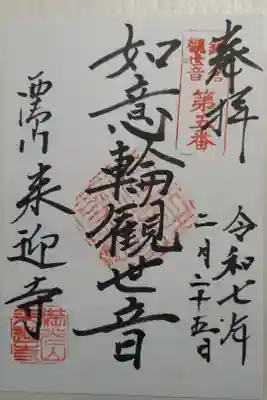 奉拝
鎌倉
観世音
第五番
令和七年
二月二十五日
如意輪観世音
西御門 来迎寺